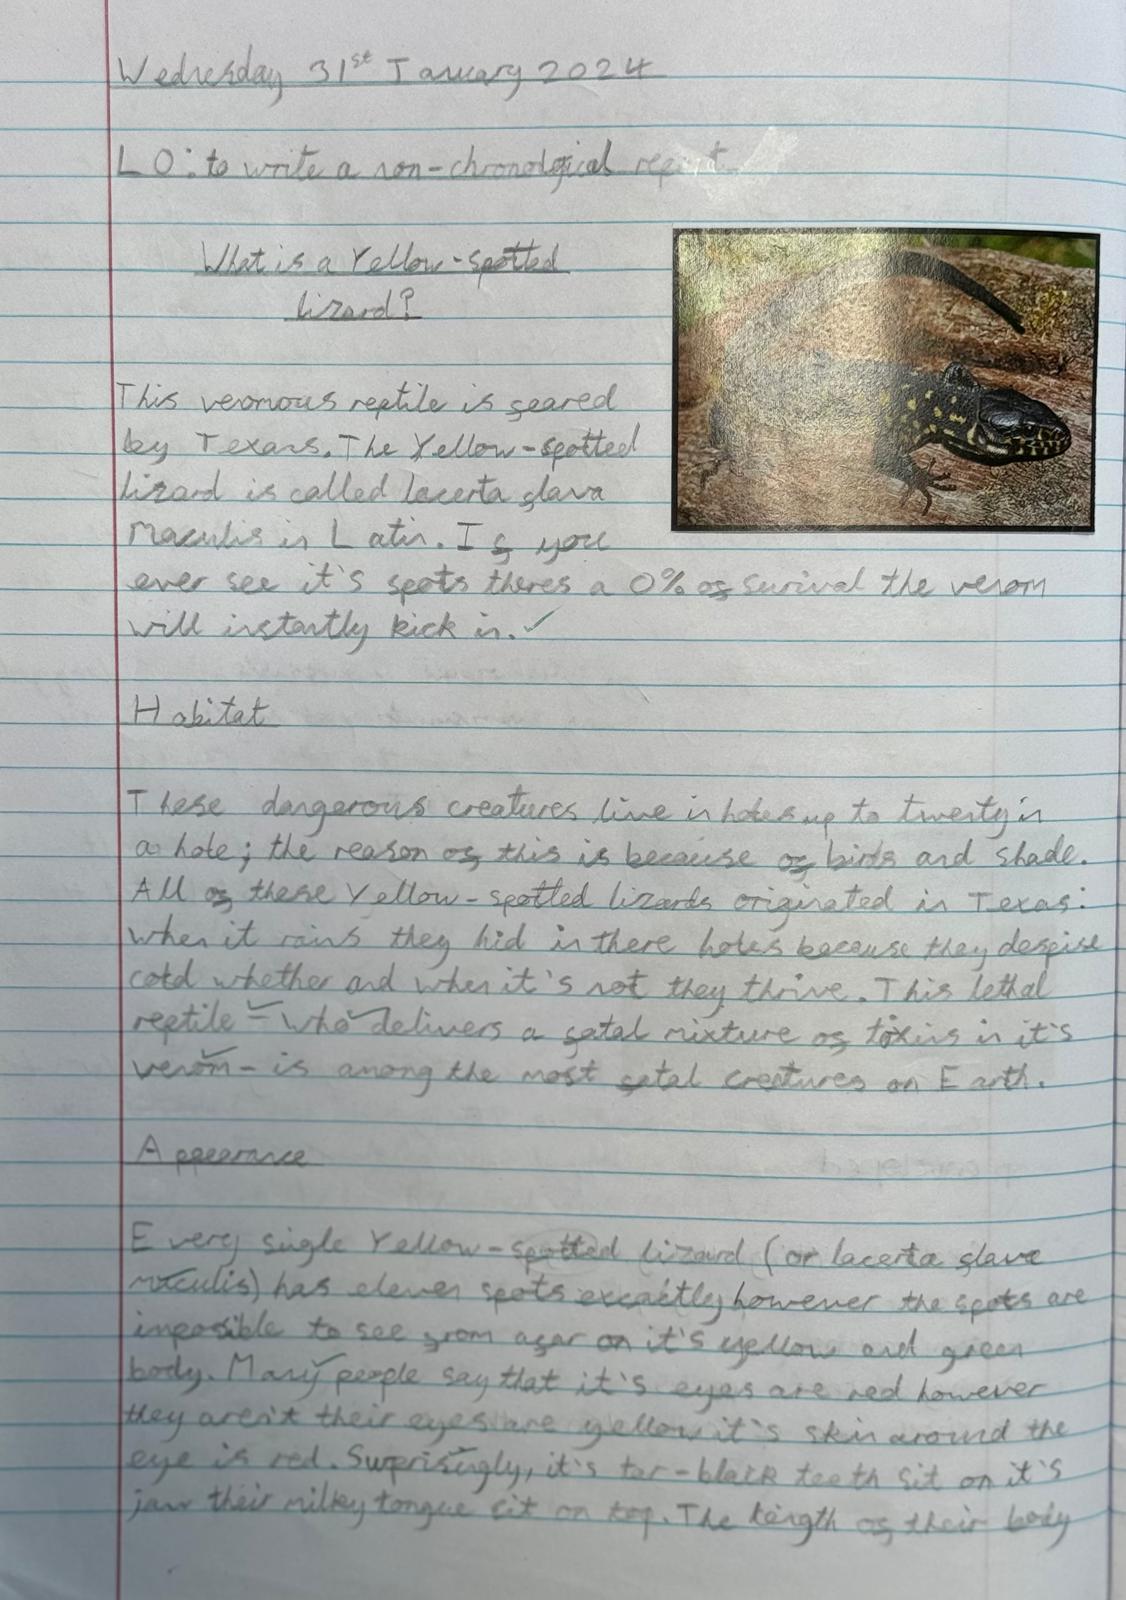 Wednesday 31st January 2024
LO: to write a non-chronological report
What is a Yellow-spotted
lizard?
This venomous reptile is feared
by Texans. The Yellow-spotted
lizard is called lacerta flava
Maculis in Latin. If you
ever see it's spots theres a 0% of surival the venom
will instantly kick in.
Habitat
These dangerous creatures live in holes up to twenty in
a hole; the reason of this is because of birds and shade.
All of these Yellow-spotted lizards originated in Texas:
when it rains they hid in there holes because they despise
cold whether and when it's not they thrive. This lethal
reptile - who delivers a fatal mixture of toxins in it's
venom - is among the most fatal creatures on Earth.
Appearance
Every single Yellow-spotted lizard (or lacerta flave
maculis) has eleven spots excactly however the spots are
impossible to see from afar on it's yellow and green
body. Many people say that it's eyes are red however
they aren't their eyes are yellow it's skin around the
eye is red. Surprisingly, it's tar-black teeth sit on it's
jaw their milky tongue sit on top. The length of their body